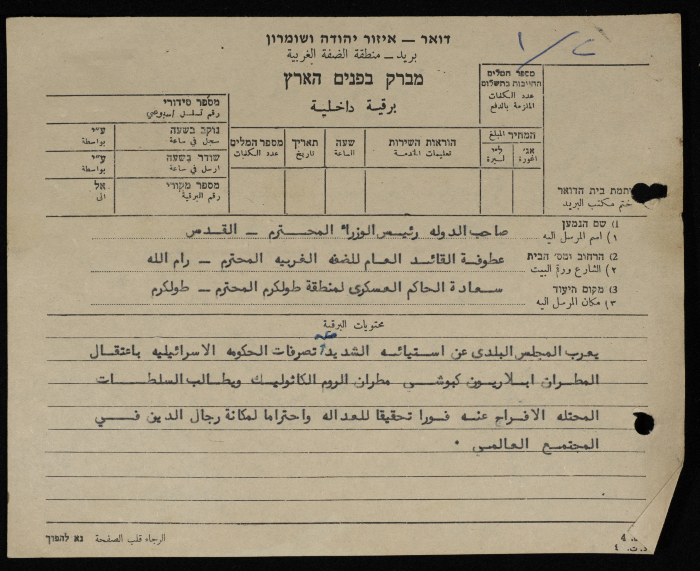 דואר – איזור יהודה ושומרון
بريد – منطقة الضفة الغربية
מברק בפנים הארץ
برقية داخلية
מספר המלים
החייבות בתשלום
عدد الكلمات
الملزمة بالدفع
המחיר המבלג
אג' ל"י
اغورة ليرة
הוראות השירות
تعليمات الخدمة
שעה
الساعة
תאריך
تاريخ
מספר המלים
عدد الكلمات
מספר סידורי
رقم تسلسل
נוקב בשעה ע"י
سجل في ساعة بواسطة
שודר בשעה ע"י
ارسل في ساعة بواسطة
מספר מקורי אל
رقم البرقية الى
חתמת בית הדואר
ختم مكتب البريد
1) שם הנמען
١) اسم المرسل اليه
صاحب الدوله رئيس الوزراء المحترم – القدس
2) הרחוב ומס' הבית
٢) الشارع ورقم البيت
عطوفة القائد العام للضفه الغربيه المحترم – رام الله
3) מקום היעוד
٣) مكان المرسل اليه
سعادة الحاكم العسكرى لمنطقة طولكرم المحترم – طولكرم
محتويات البرقية
يعرب المجلس البلدى عن استيائه الشديد من تصرفات الحكومه الاسرائيليه باعتقال
المطران ايلاريون كبوشي مطران الروم الكاثوليك ويطالب السلطات
المحتله الافراج عنه فورا تحقيقا للعداله واحتراما لمكانة رجال الدين في
المجتمع العالمي .
الرجاء قلب الصفحة נא להפוך